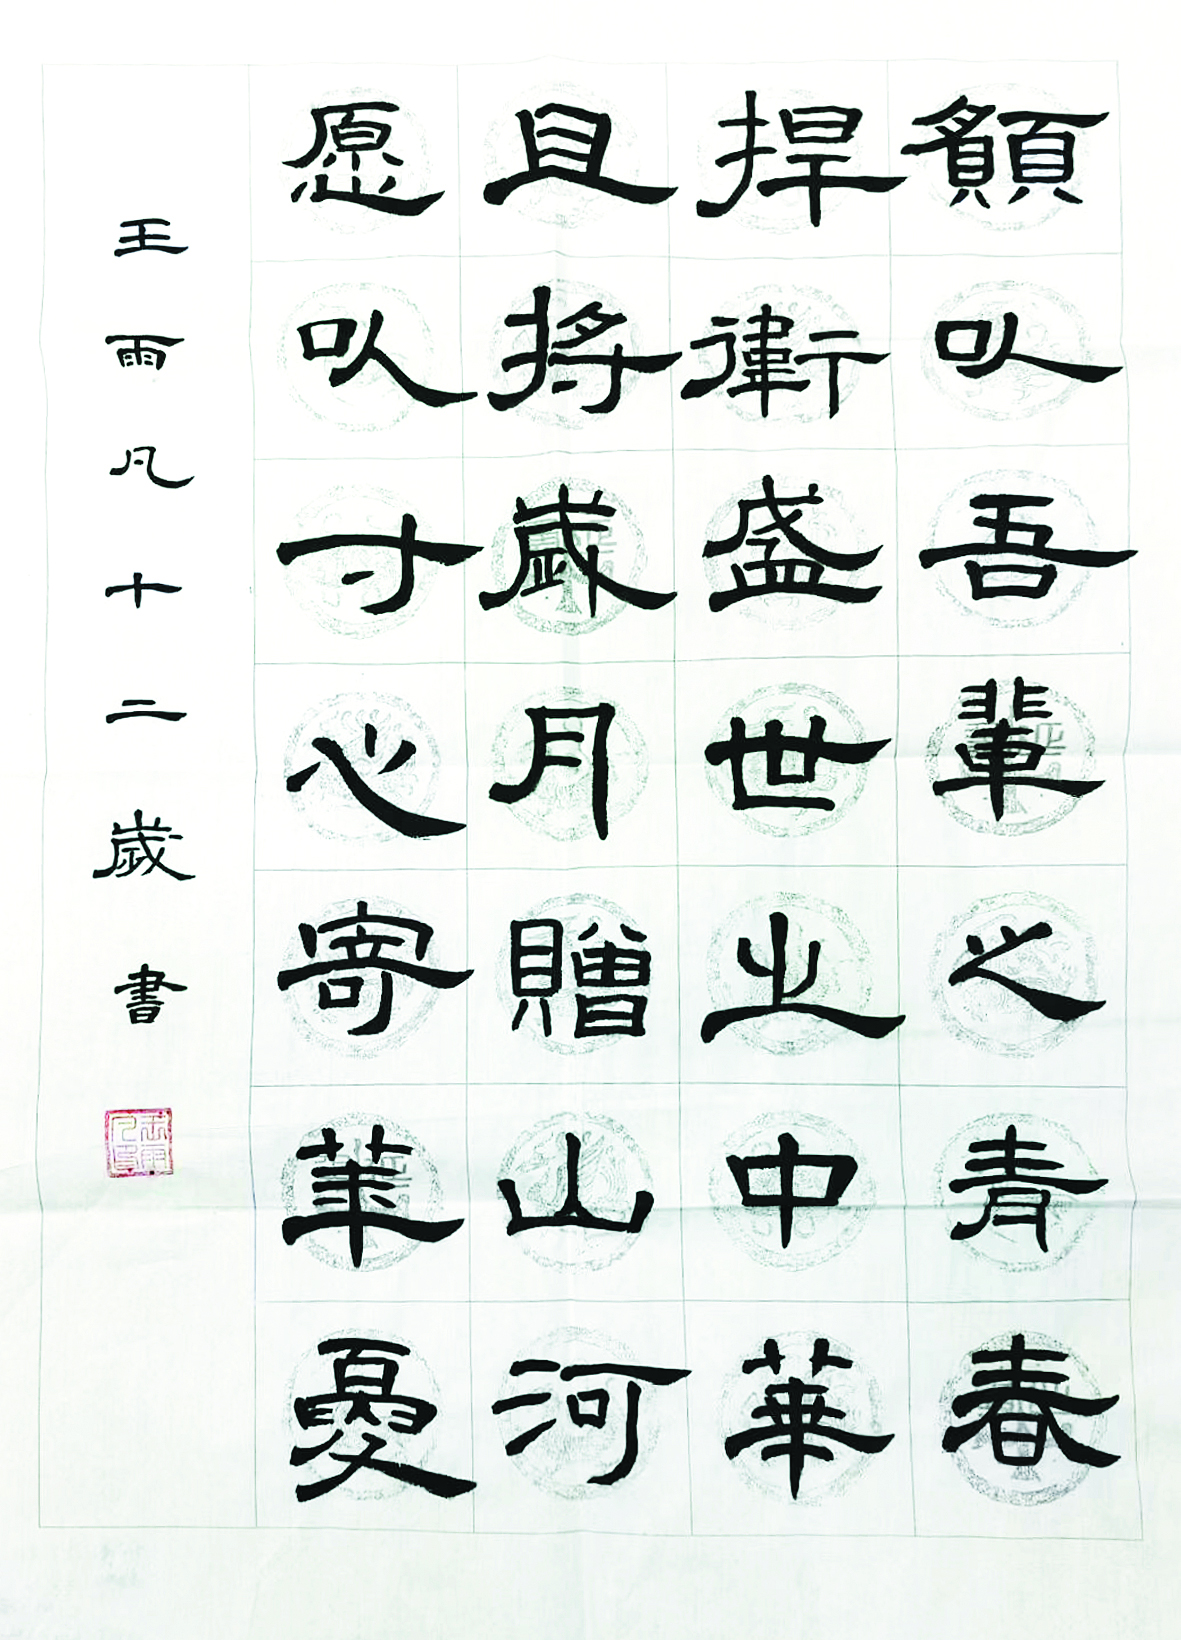 願以吾輩之青春
捍衛盛世之中華
且將歲月贈山河
愿以寸心寄華夏
王雨凡十二歲書
王雨凡印